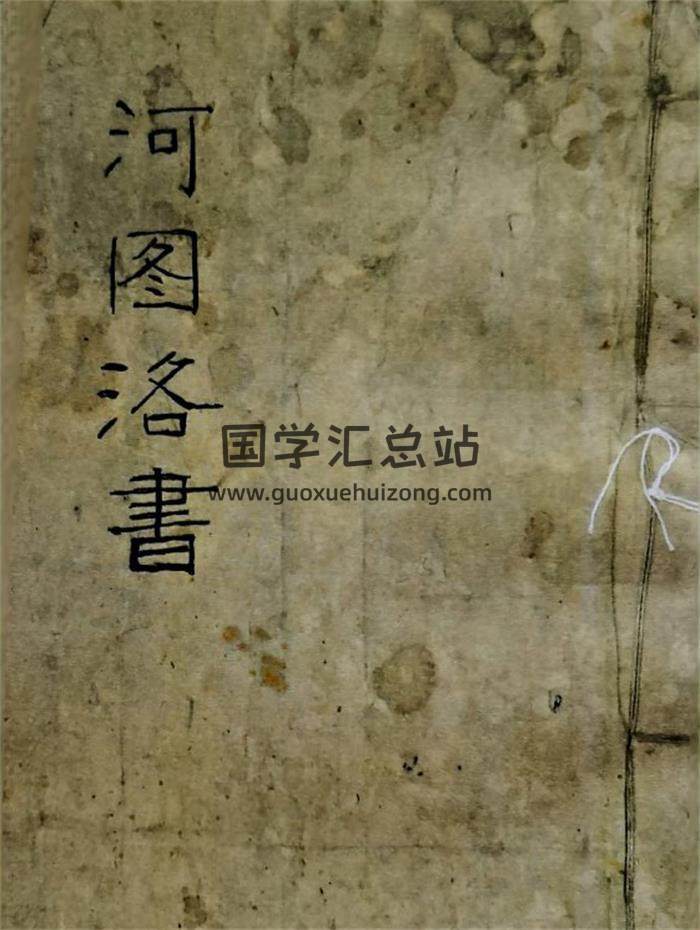 河图洛書
国学汇总站
www.guoxuehuizong.com